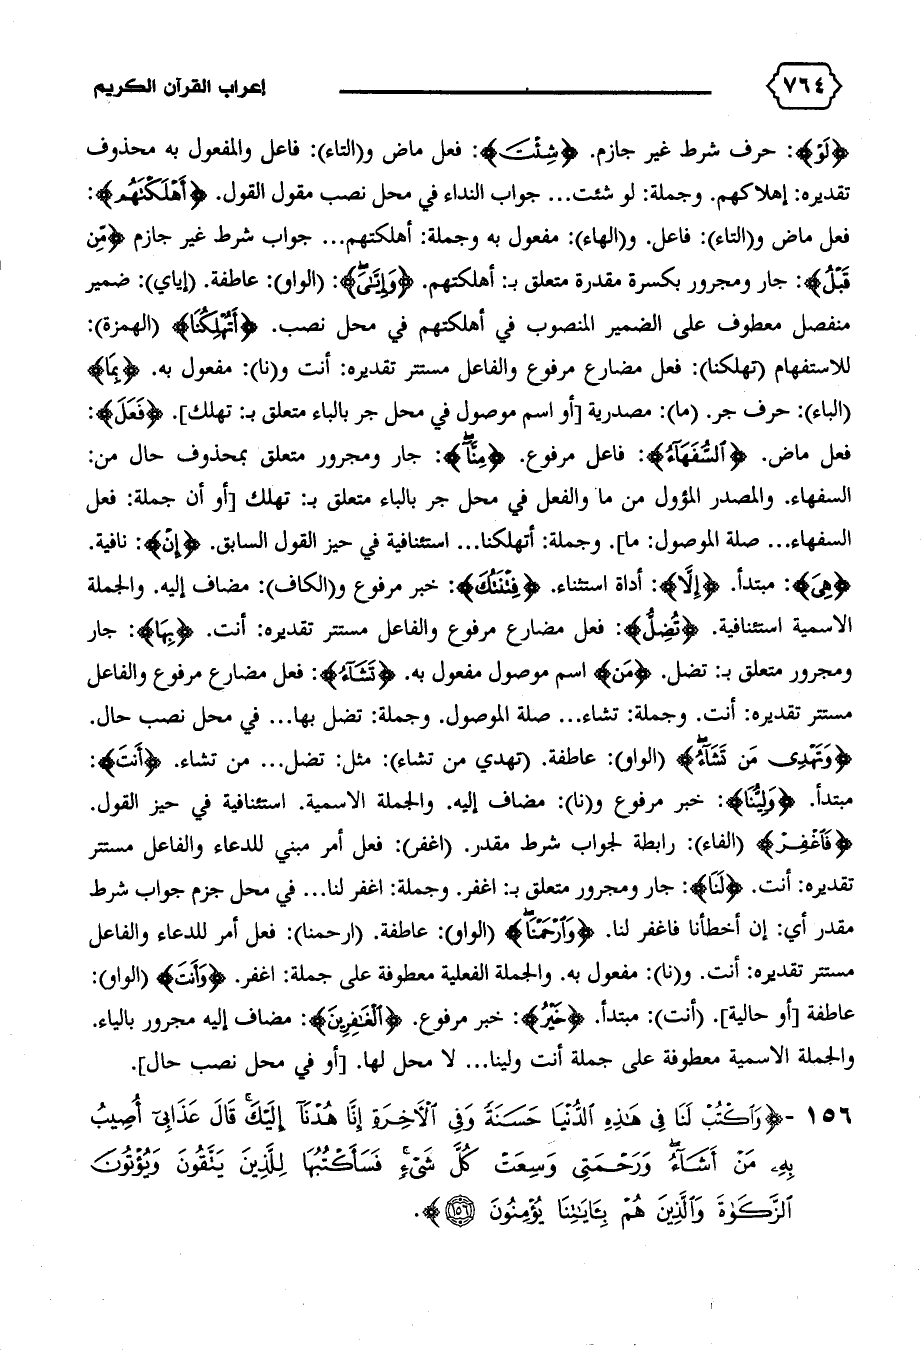 ٧٦٤ إعراب القرآن الكريم
﴿لَوْ﴾: حرف شرط غير جازم. ﴿شِئْتَ﴾: فعل ماض و(التاء): فاعل والمفعول به محذوف
تقديره: إهلاكهم. وجملة: لو شئت... جواب النداء في محل نصب مقول القول. ﴿أَهْلَكْتَهُم﴾:
فعل ماض و(التاء): فاعل. و(الهاء): مفعول به وجملة: أهلكتهم... جواب شرط غير جازم ﴿مِّن
قَبْلُ﴾: جار ومجرور بكسرة مقدرة متعلق بـ: أهلكتهم. ﴿وَإِيَّـٰىَ﴾: (الواو): عاطفة. (إياي): ضمير
منفصل معطوف على الضمير المنصوب في أهلكتهم في محل نصب. ﴿أَتُهْلِكُنَا﴾ (الهمزة):
للاستفهام (تهلكنا): فعل مضارع مرفوع والفاعل مستتر تقديره: أنت و(نا): مفعول به. ﴿بِمَا﴾
(الباء): حرف جر. (ما): مصدرية [أو اسم موصول في محل جر بالباء متعلق بـ: تهلك]. ﴿فَعَلَ﴾:
فعل ماض. ﴿ٱلسُّفَهَآءُ﴾: فاعل مرفوع. ﴿مِنَّآ﴾: جار ومجرور متعلق بمحذوف حال من:
السفهاء. والمصدر المؤول من ما والفعل في محل جر بالباء متعلق بـ: تهلك [أو أن جملة: فعل
السفهاء... صلة الموصول: ما]. وجملة: أتهلكنا... استئنافية في حيز القول السابق. ﴿إِنْ﴾: نافية.
﴿هِىَ﴾: مبتدأ. ﴿إِلَّا﴾: أداة استثناء. ﴿فِتْنَتُكَ﴾: خبر مرفوع و(الكاف): مضاف إليه. والجملة
الاسمية استئنافية. ﴿تُضِلُّ﴾: فعل مضارع مرفوع والفاعل مستتر تقديره: أنت. ﴿بِهَا﴾: جار
ومجرور متعلق بـ: تضل. ﴿مَن﴾ اسم موصول مفعول به. ﴿تَشَآءُ﴾: فعل مضارع مرفوع والفاعل
مستتر تقديره: أنت. وجملة: تشاء... صلة الموصول. وجملة: تضل بها... في محل نصب حال.
﴿وَتَهْدِى مَن تَشَآءُ﴾ (الواو): عاطفة. (تهدي من تشاء): مثل: تضل... من تشاء. ﴿أَنتَ﴾:
مبتدأ. ﴿وَلِيُّنَا﴾: خبر مرفوع و(نا): مضاف إليه. والجملة الاسمية. استئنافية في حيز القول.
﴿فَٱغْفِرْ﴾ (الفاء): رابطة لجواب شرط مقدر. (اغفر): فعل أمر مبني للدعاء والفاعل مستتر
تقديره: أنت. ﴿لَنَا﴾: جار ومجرور متعلق بـ: اغفر. وجملة: اغفر لنا... في محل جزم جواب شرط
مقدر أي: إن أخطأنا فاغفر لنا. ﴿وَٱرْحَمْنَا﴾ (الواو): عاطفة. (ارحمنا): فعل أمر للدعاء والفاعل
مستتر تقديره: أنت. و(نا): مفعول به. والجملة الفعلية معطوفة على جملة: اغفر. ﴿وَأَنتَ﴾ (الواو):
عاطفة [أو حالية]. (أنت): مبتدأ. ﴿خَيْرُ﴾: خبر مرفوع. ﴿ٱلْغَـٰفِرِينَ﴾: مضاف إليه مجرور بالياء.
والجملة الاسمية معطوفة على جملة أنت ولينا... لا محل لها. [أو في محل نصب حال].
١٥٦ -﴿وَٱكْتُبْ لَنَا فِى هَـٰذِهِ ٱلدُّنْيَا حَسَنَةً وَفِى ٱلْآخِرَةِ إِنَّا هُدْنَآ إِلَيْكَ ۚ قَالَ عَذَابِىٓ أُصِيبُ
بِهِۦ مَنْ أَشَآءُ ۖ وَرَحْمَتِى وَسِعَتْ كُلَّ شَىْءٍ ۚ فَسَأَكْتُبُهَا لِلَّذِينَ يَتَّقُونَ وَيُؤْتُونَ
ٱلزَّكَوٰةَ وَٱلَّذِينَ هُم بِـَٔايَـٰتِنَا يُؤْمِنُونَ ١٥٦﴾.